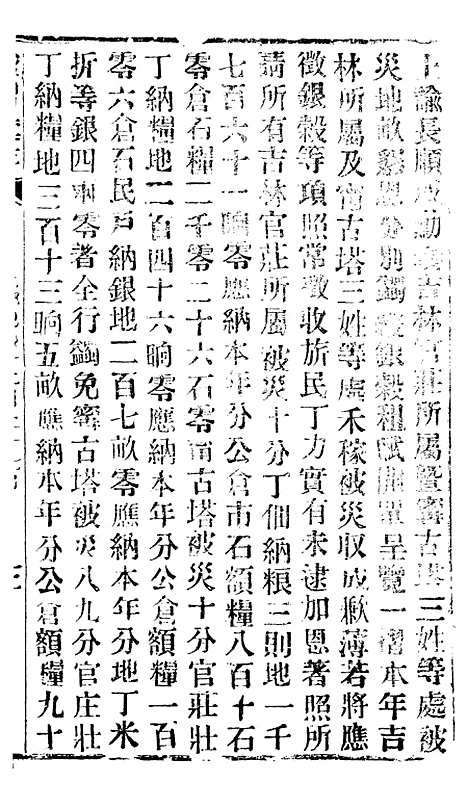 上諭長順查勘吉林官莊所屬暨甯古塔三姓等處被
災地畝懇恩分別蠲緩銀穀租賦開單呈覽一摺本年吉
林所屬及甯古塔三姓等處禾稼被災收成歉薄若將應
徵銀穀等項照常徵收旂民丁力實有未逮加恩著照所
請所有吉林官莊所屬被災十分丁佃納粮三則地一千
七百六十一晌零應納本年分公倉市石額糧八百十石
零倉石糧二千零二十六石零甯古塔被災十分官莊壯
丁納糧地二百四十六晌零應納本年分公倉額糧一百
零六倉石民戶納銀地二百七畝零應納本年分地丁米
折等銀四兩零者全行蠲免甯古塔被災八九分官庄壯
丁納糧地三百十三晌五畝應納本年分公倉額糧九十